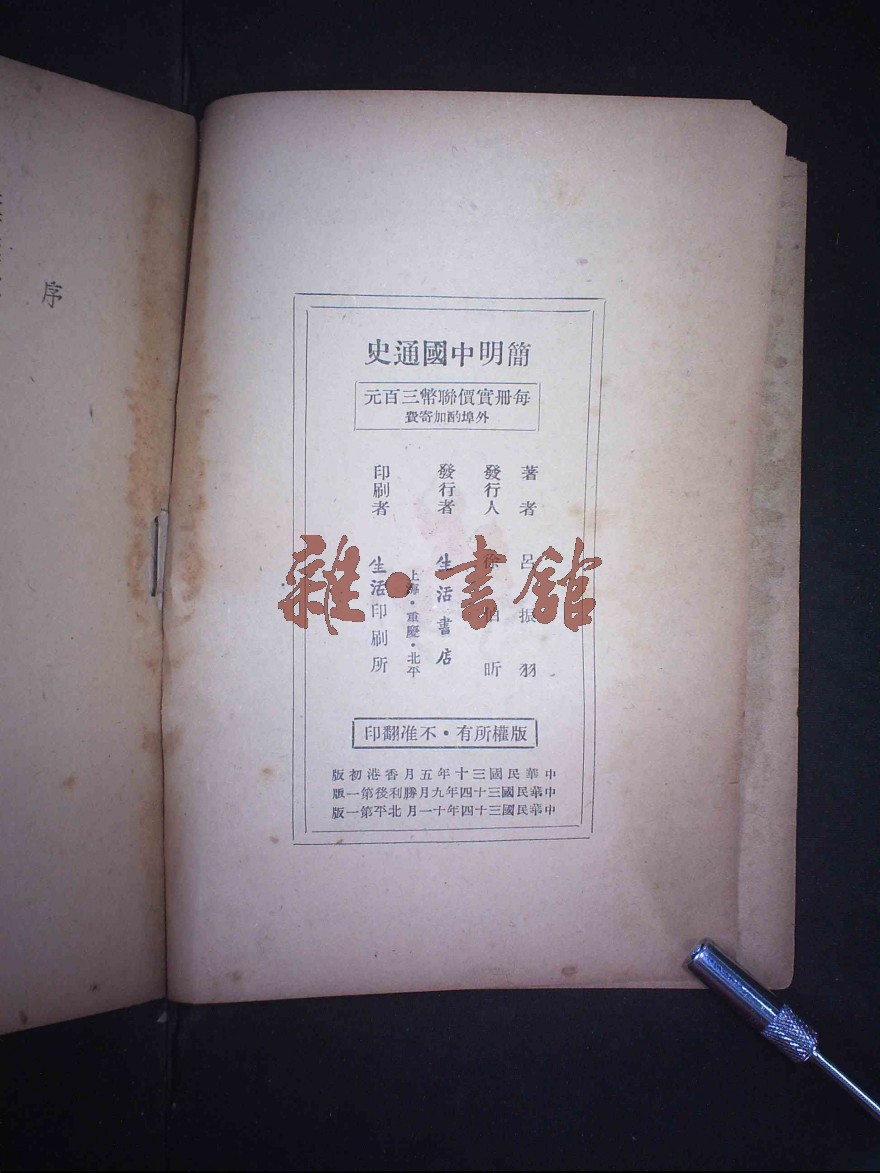 序
簡明中國通史
每冊實價聯幣三百元
外埠酌加寄費
著者 呂振羽
發行人 徐伯昕
發行者 生活書店
上海・重慶・北平
印刷者 生活印刷所
版權所有・不准翻印
中華民國三十年五月香港初版
中華民國三十四年九月勝利後第一版
中華民國三十四年十一月北平第一版
雜・書館